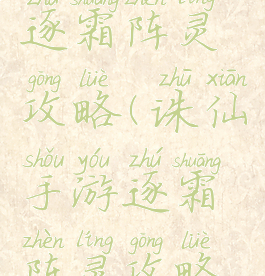 zhú shuāng zhèn líng
逐霜阵灵
gōng lüè zhū xiān
攻略(诛仙
shǒu yóu zhú shuāng
手游逐霜
zhèn líng gōng lüè
阵灵攻略